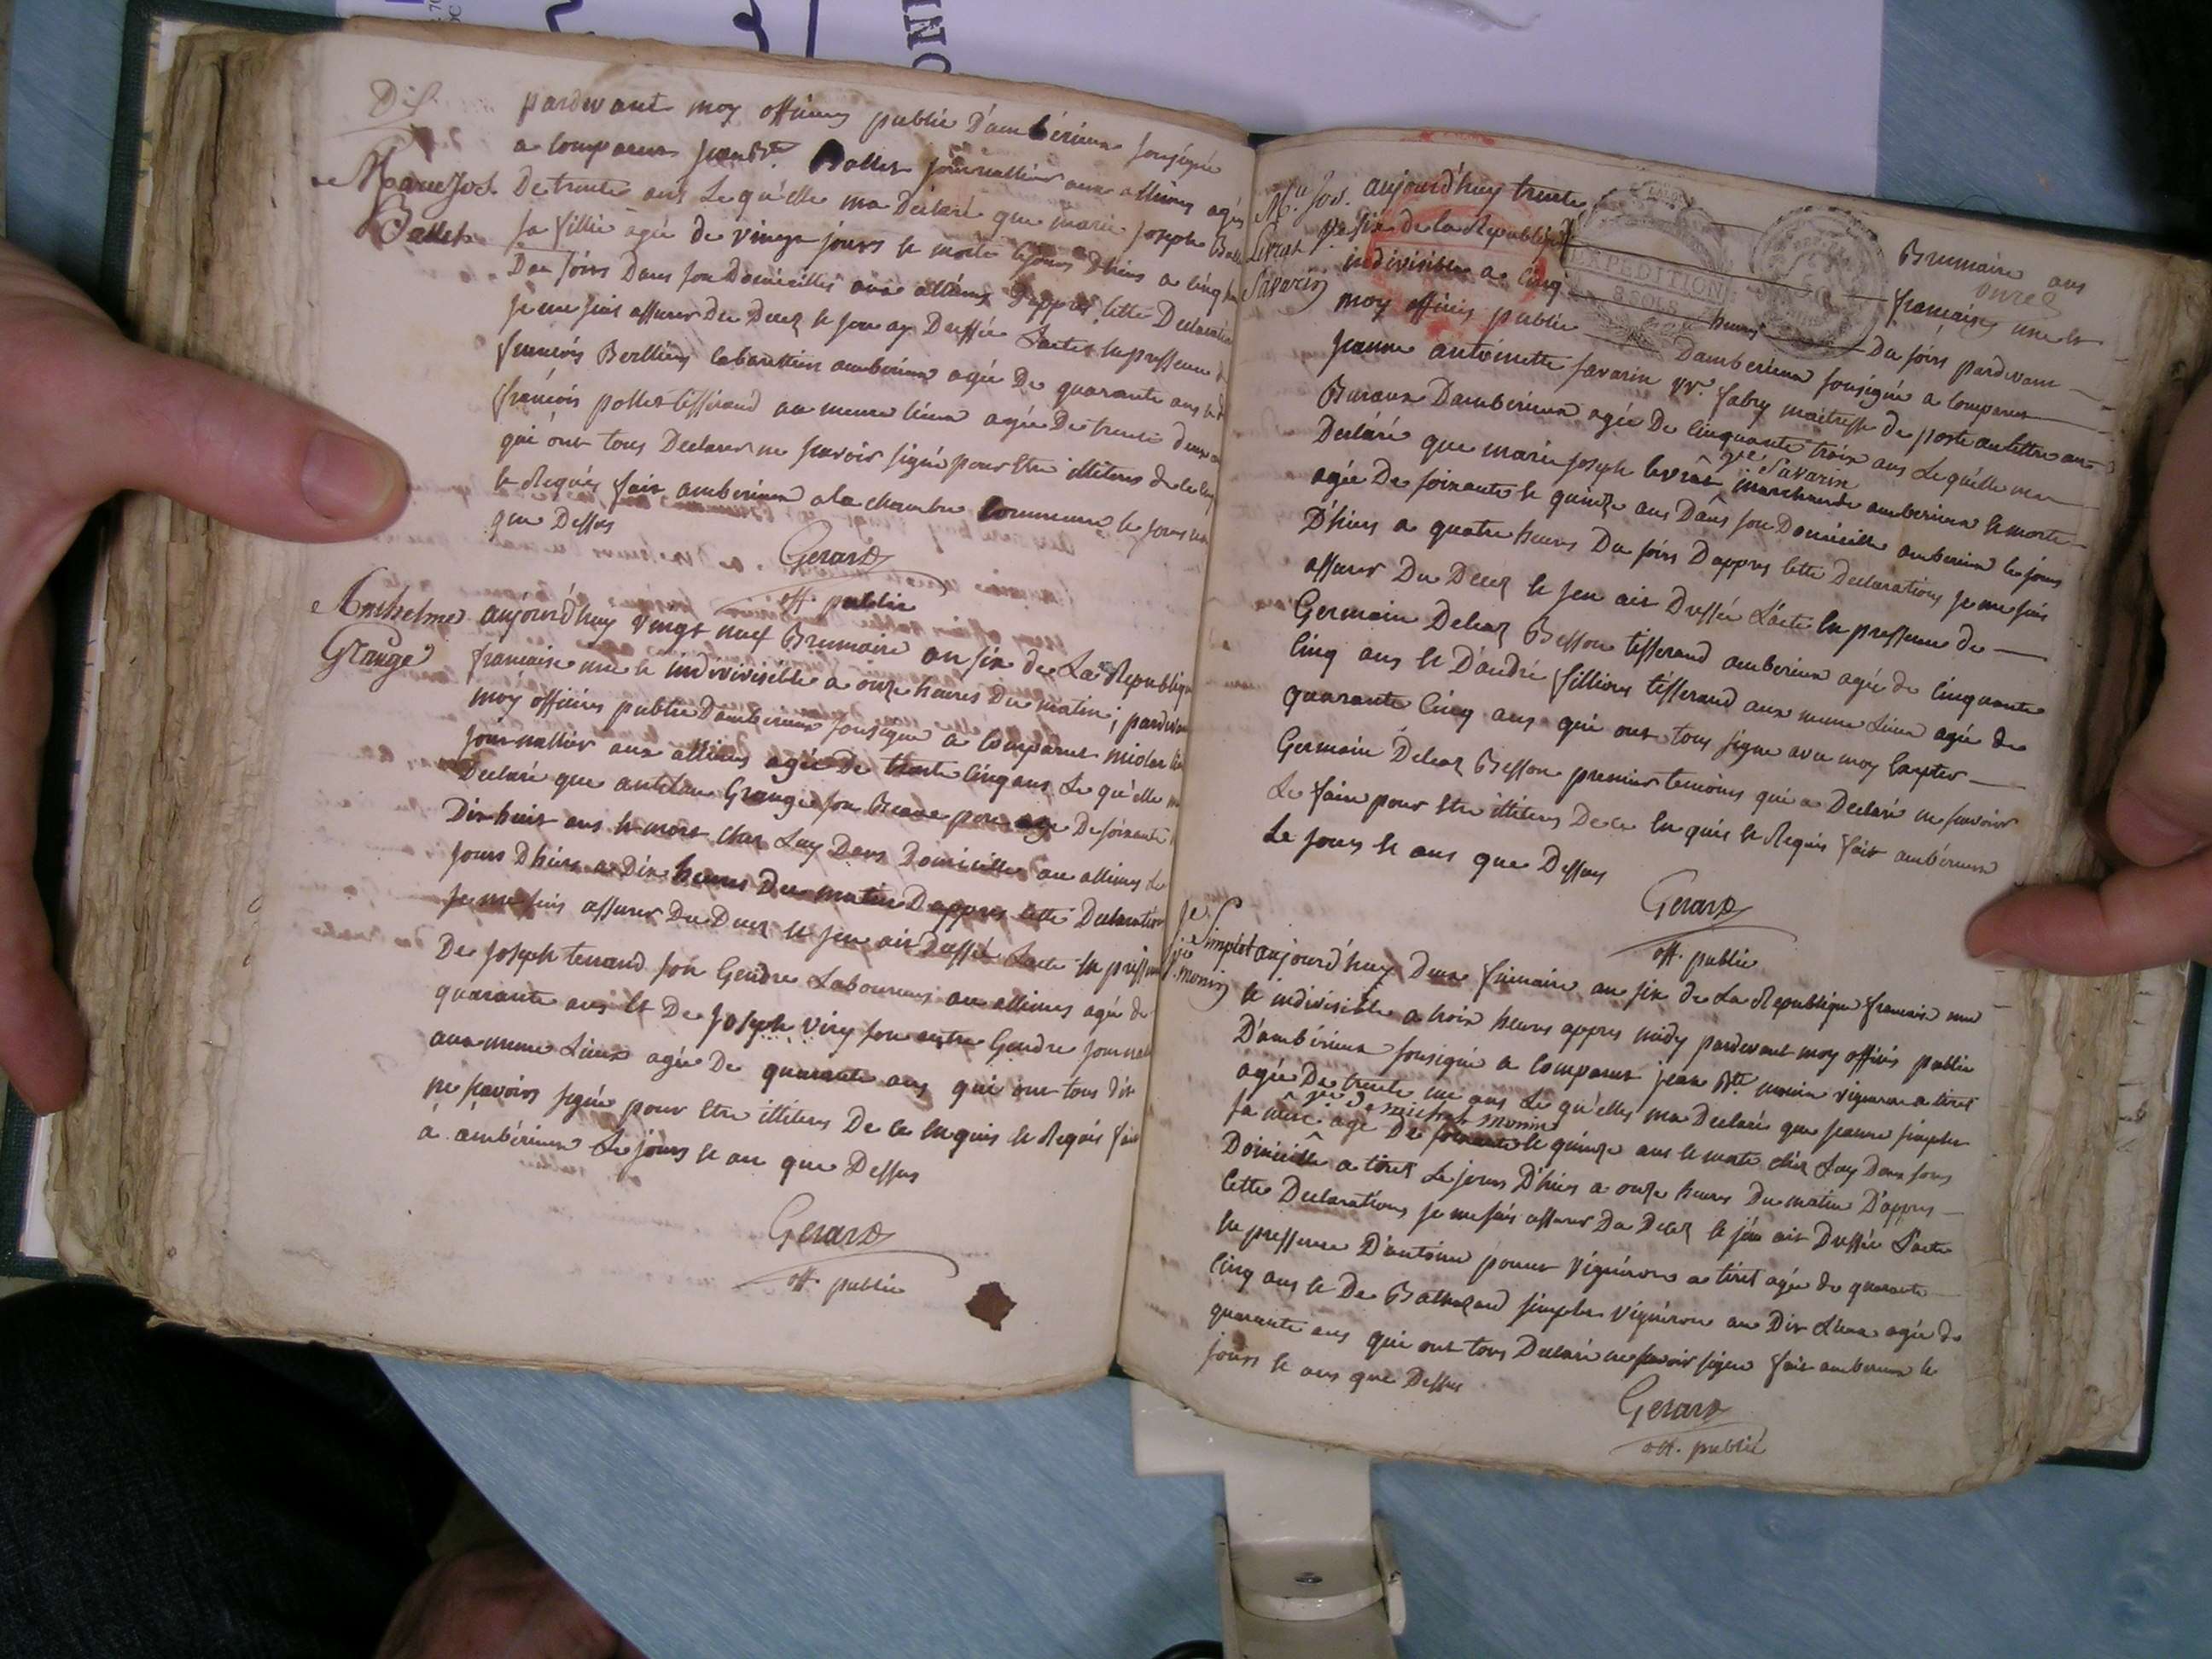 Dis
pardevant moy officiers public D'ambérieux sousigné
a comparus jean Bte. Ballet journallier aux allimes agés
Marie Jos.
Ballet
De trente ans Le qu'elle ma Déclaré que marie joseph Balle
sa fillie agée de vingt jours et morte le jours Dhiers a cinq
Du soirs Dans son Domicillie aux allimes Dappres cette Declaration
je me suis assurer Du Decez et jeu ay Dressée Lactes en pressence d
francois Berlliez cabarettier ambérieux agée De quarante ans et d
francois pollet tisserand au meme Lieux agée De trente deux an
qui ont tous Declarer ne scavoir signé pour être illiteres de ce
et Requis fait ambérieux a la chambre Commune le jours et
que Dessus
Gerard
off. public
Anthelme
Grange
aujourd'huy vingt neuf Brumaire an six de La Republique
francaise une et indivivisible a onze heures Du matin ; pardevan
moy officiers public Dambérieux sousigné a comparus
journallier aux allimes agée De trente cinq ans Le qu'elle m
Declaré que Grange son Beaux pere agé De soixante
Dix huit ans et mort chez Luy Dans Domicille au allimes Le
jours Dhiers a Dix heures Du matin Dappres cette Declaration
je me suis assurer Du Decez et jeu ait Dressée Lacte en pressence
De joseph tenand son Gendre Laboureurs au allimes agé de
quarante ans et De joseph viry son autre Gendre journal
aux meme Lieux agée De quarante ans qui ont tous dit
ne scavoirs signé pour être illiteres De ce enquis et Requis fait
à ambérieux Le jours et an que Dessus
Gerard
off. public
M.ie Jos.
Livrat
ve
Savarin
aujourd'huy trente Brumaire ans
six de la Republique française une et
indivisible a cinq heures Du soirs pardevant
EXPEDITION
8 SOLS
moy officiers public Dambérieux sousigné a comparus
jeanne antoinette savarin vve. fabry maitresse de poste aux lettre au
Bureaux Dambérieux agée De cinquante troix ans Lequ'elle ma
ve Savarin
Declaré que marie joseph livrat marchande ambérieux et morte
agée De soixante et quinze ans Dans son Domicille ambérieux le jours
D'hiers a quatre heures Du soirs Dappres cette Declarations je me suis
assurer Du Decez et jeu ait Dressée L'acte en pressence de
Germain Besson tisserand ambérieux agée de cinquante
cinq ans et D'andré fillions tisserand aux meme Lieux agée de
quarante cinq ans qui ont tous signe avec moy Exepter
Germain Besson premier temoins qui a Declaré ne scavoir
Le faire pour être illiteres De ce enquis et Requis fait ambérieux
Le jours et ans que Dessus
Gerard
off. public
Je. Simplet
ve
monin
aujourd'huy Deux frimaire an six de La Republique francaise une
et indivisible a troix heures appres midy pardevant moy officiés public
D'ambérieux sousigné a comparus jean Bte. monin vigneron a tiret
agée De trente un ans Le qu'elles ma Declaré que jeanne simplet
ve de michel monin
sa mère agé De soixante et quinze ans et morte chez Luy Dans sons
Domicille a tiret Le jours D'hiers a onze heures Du matin D'appres
cette Declarations je me suis assurer Du Decez et jeu ait Dressée L'acte
en pressence D'antoine vignérons a tiret agée de quarante
cinq ans et De Balthazard simplet vignérons au Dit Lieux agée de
quarante ans qui ont tous Declaré ne scavoir signer fait ambérieux le
jours et ans que Dessus
Gerard
off. public